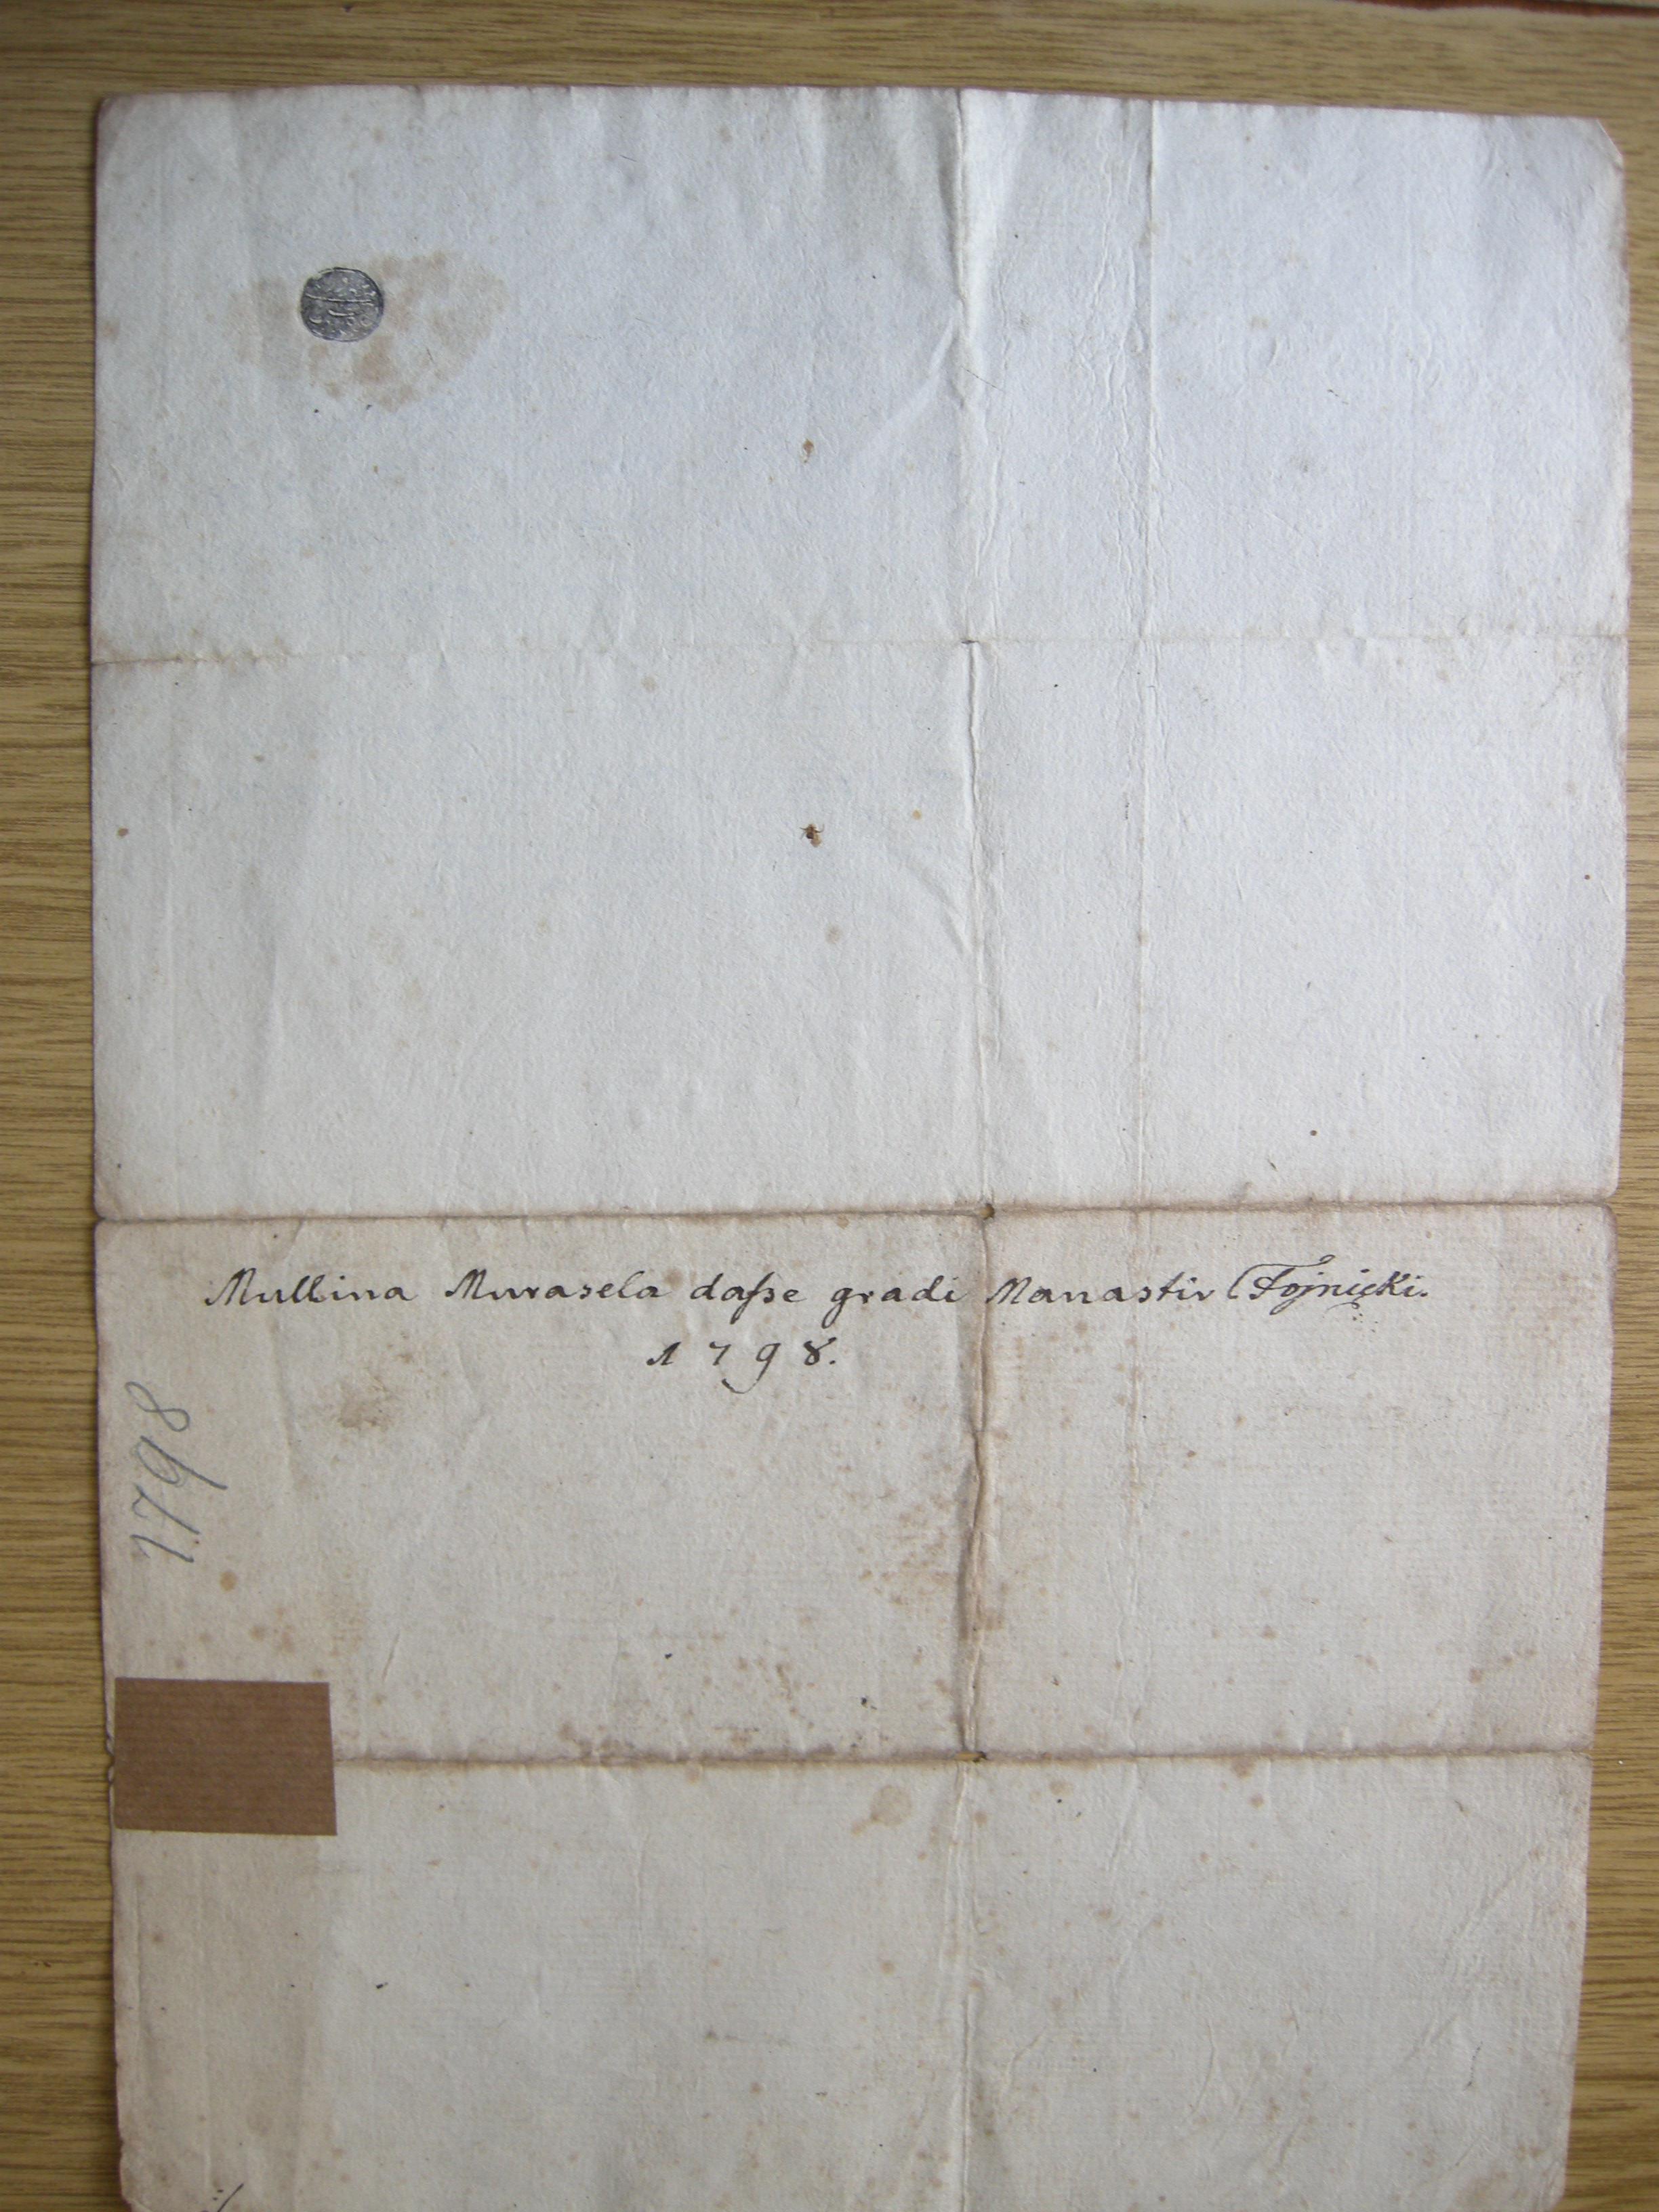 Mullina Murasela daſse gradi Manastir Fojnicki.
1798.
1798